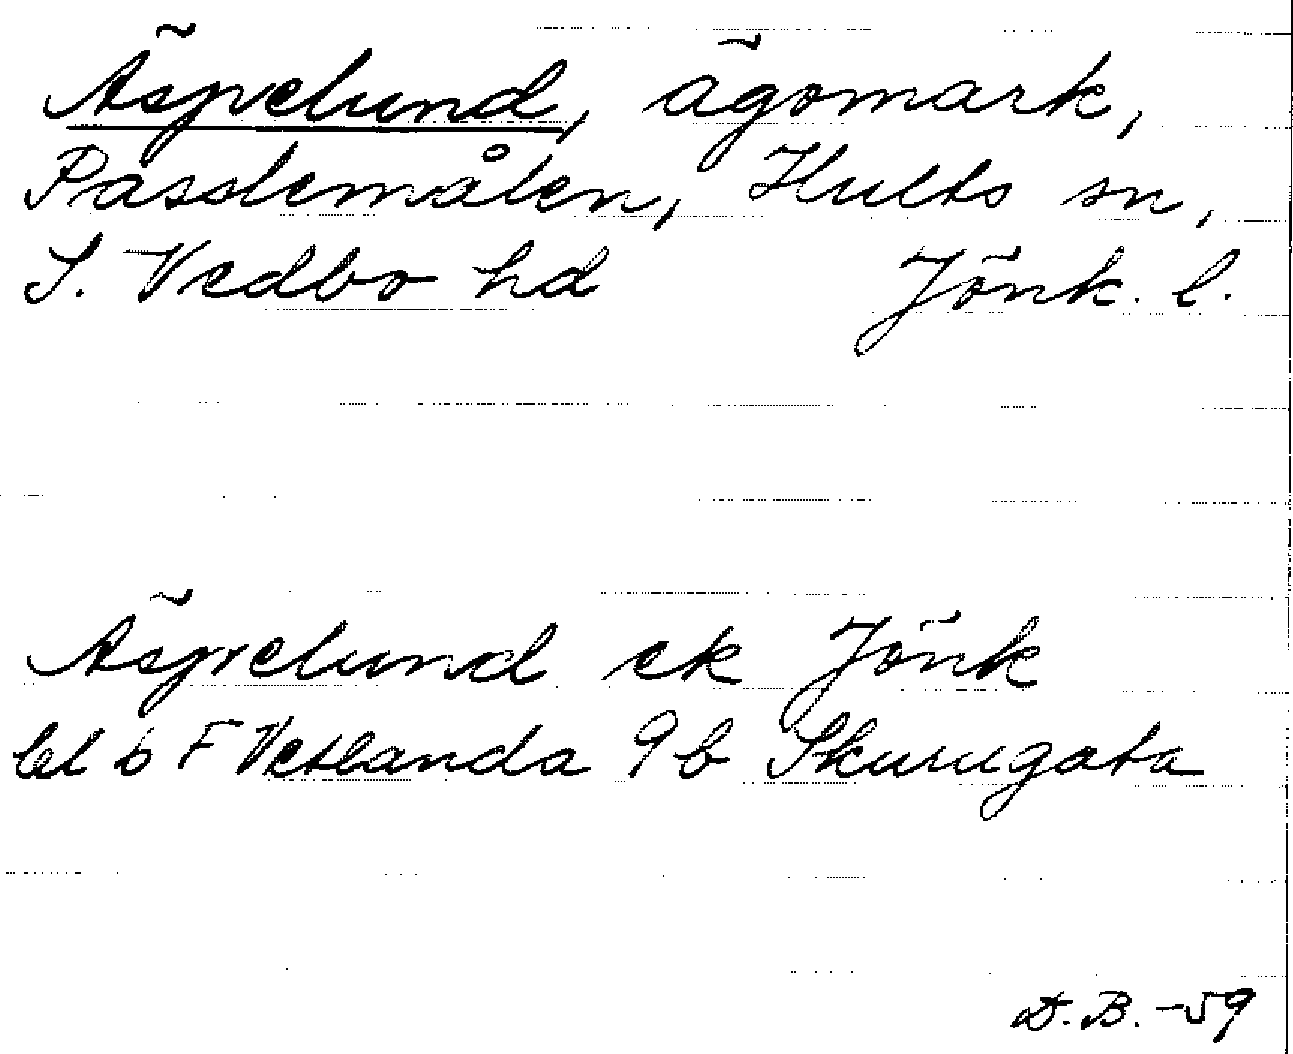 Äspelund, ägomark,
Passlemålen, Hults sn,
S. Vedbo hd Jönk. l.
Äspelund ek Jönk
bl b F Vetlanda 9b Skurugata
D.B. -59